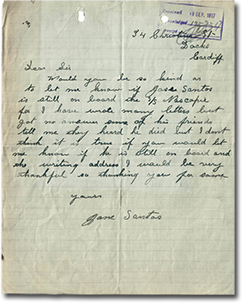 18 SEP. 1917
74 Christina St
Docks
Cardiff
Dear Sir
Would you be so kind as
to let me know if Jose Santos
is still on board the S/S Nascopie
for I have wrote many letters but
got no answer some of his friends
tell me they heard he did but I don't
think it is true if you would let
me know if he is still on board and
the writing address I would be very
thankful so thanking you for same
yours
Jane Santos